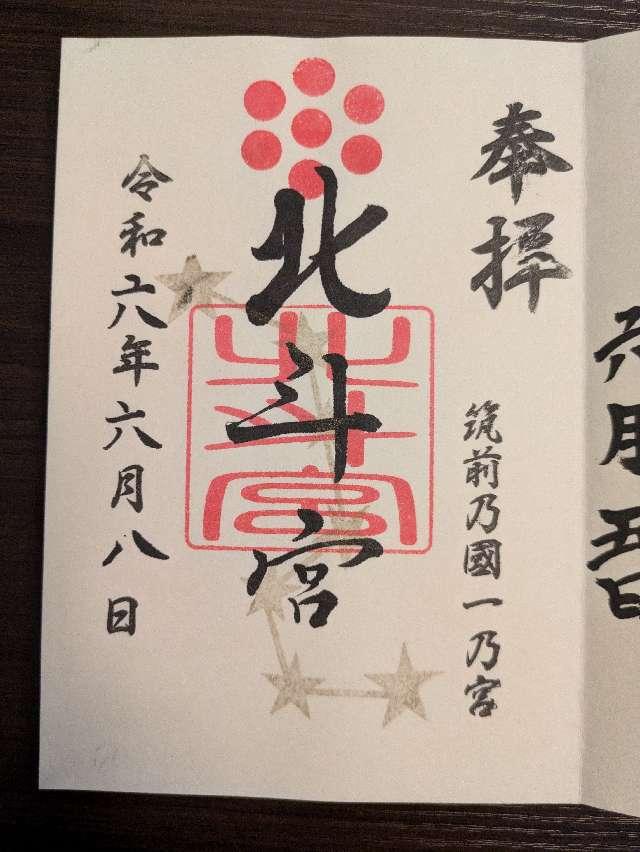 六月五日
奉拝
筑前乃國一乃宮
北斗宮
北斗宮
令和六年六月八日